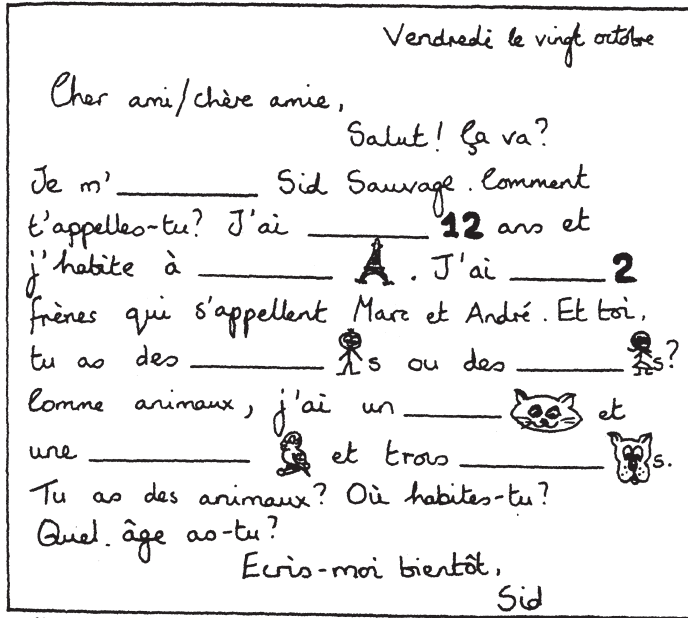 Vendredi le vingt octobre
Cher ami/chère amie,
Salut! Ça va?
Je m'__________ Sid Sauvage. Comment
t'appelles-tu? J'ai __________ 12 ans et
j'habite à __________ . J'ai __________ 2
frères qui s'appellent Marc et André. Et toi,
tu as des __________ s ou des __________ s?
Comme animaux, j'ai un __________ et
une __________ et trois __________ s.
Tu as des animaux? Où habites-tu?
Quel âge as-tu?
Ecris-moi bientôt,
Sid